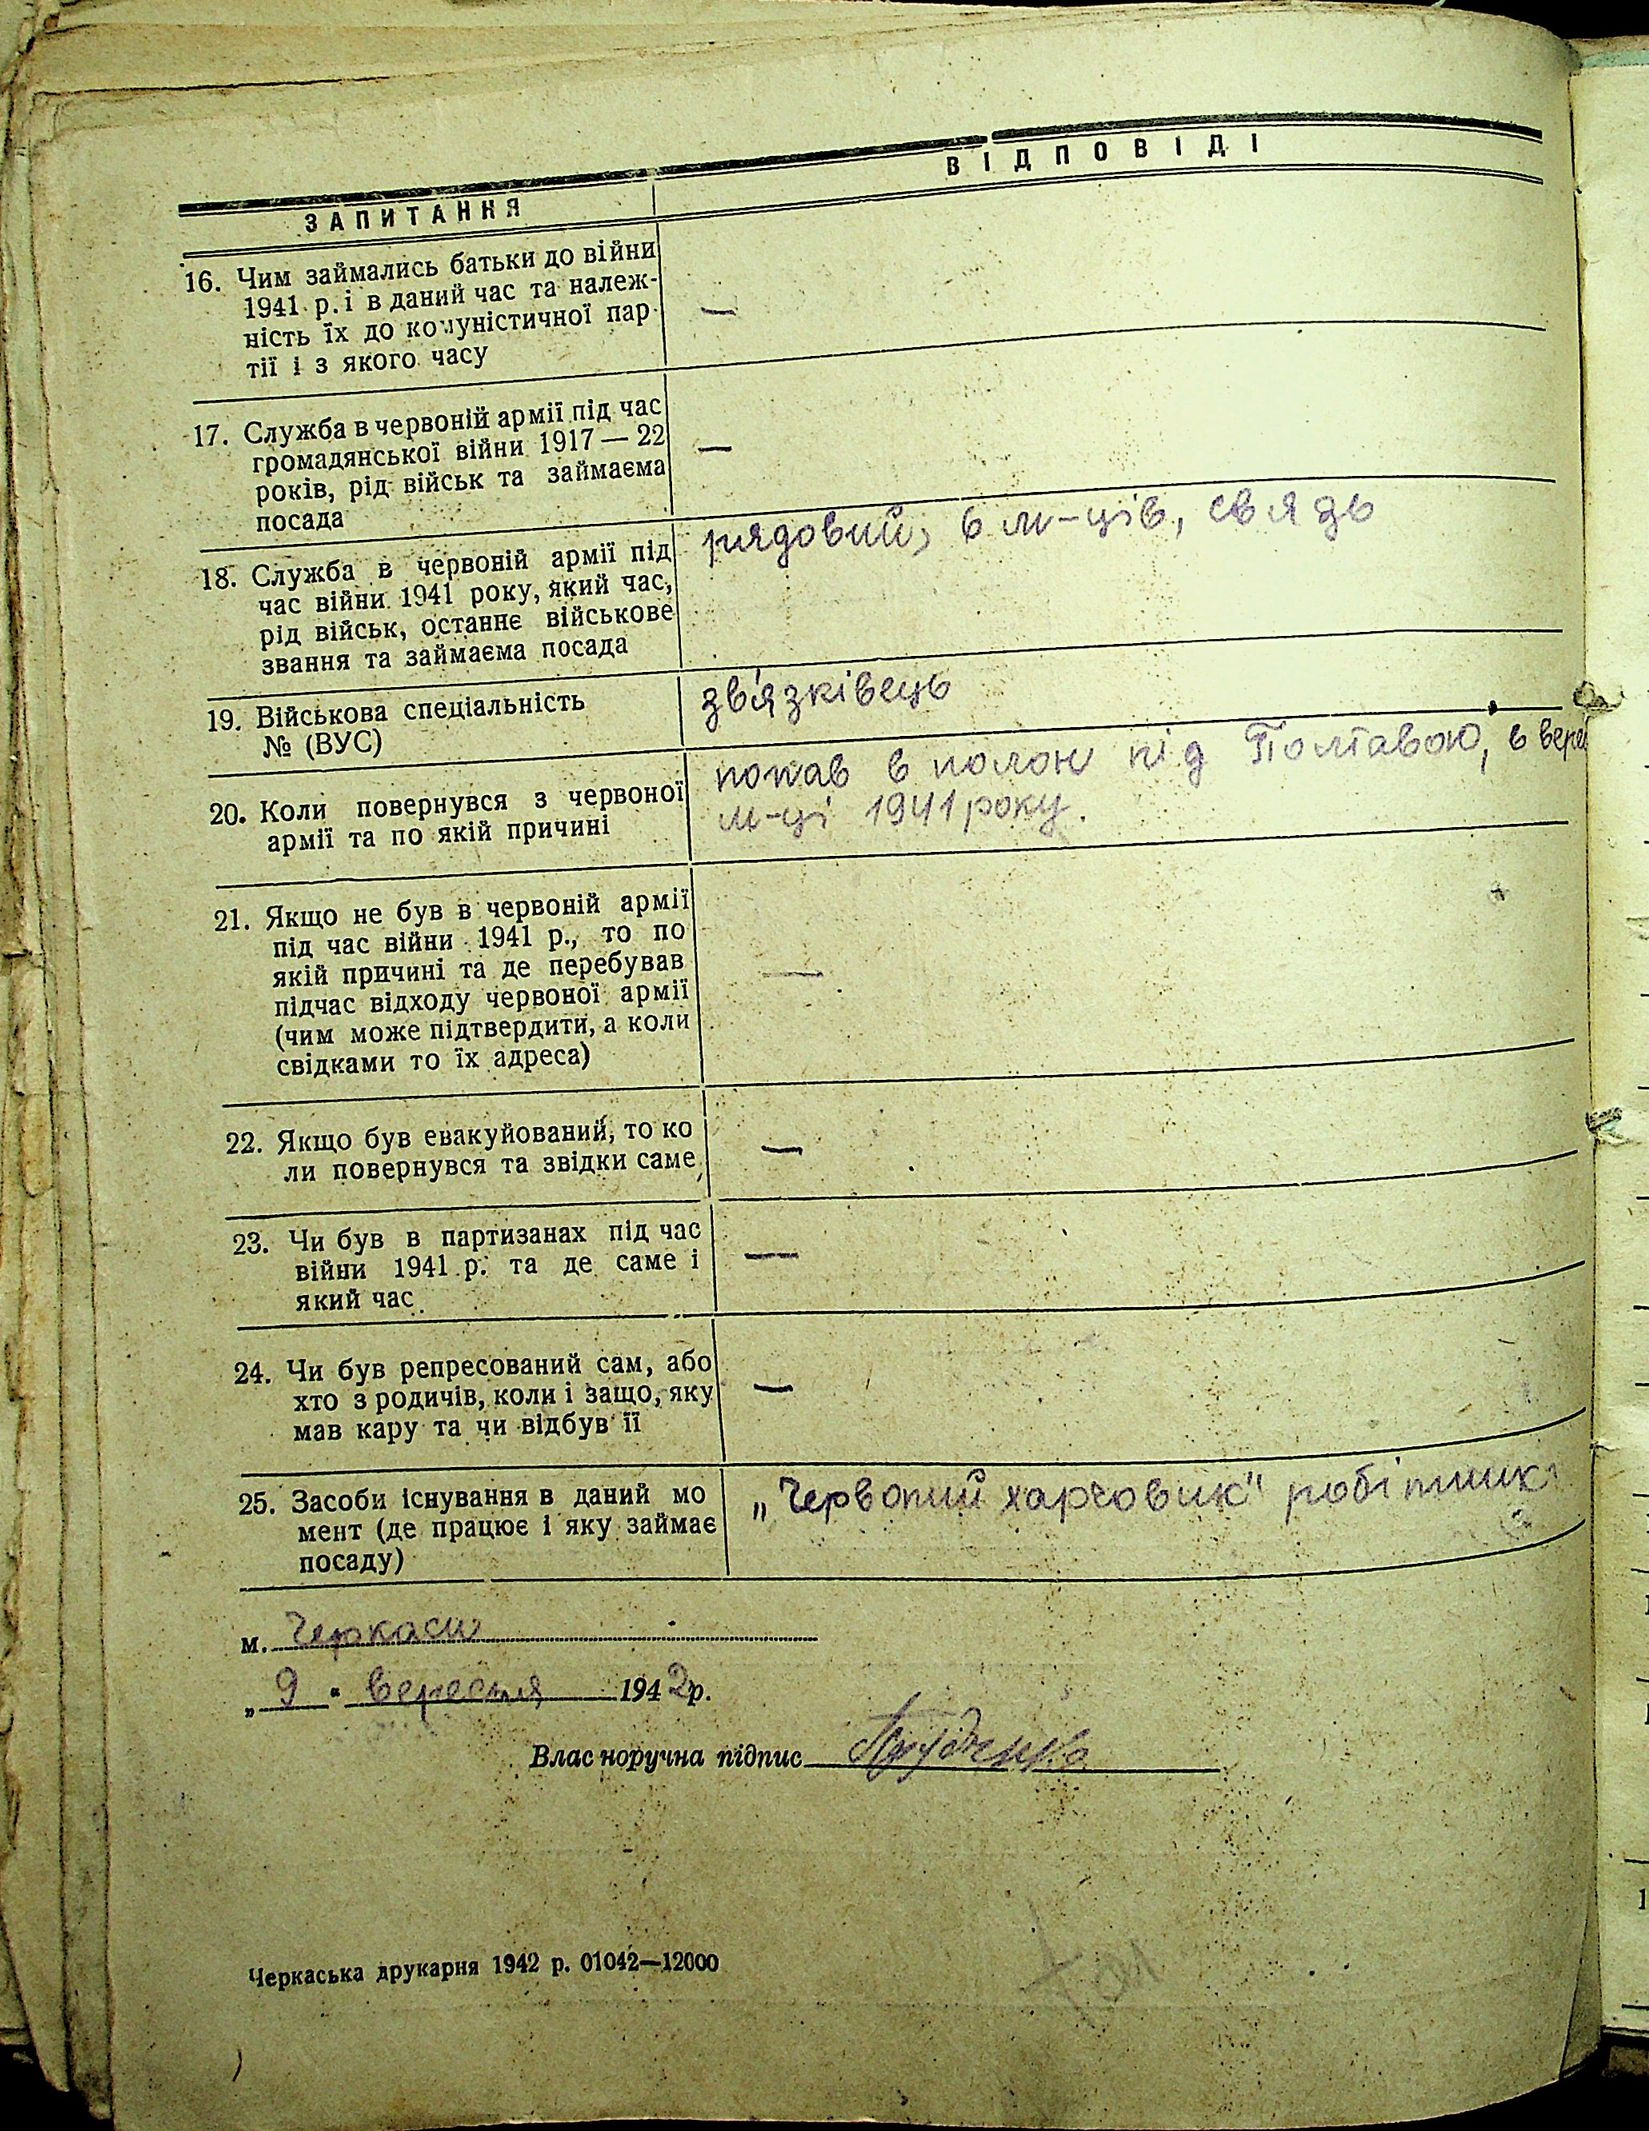 ЗАПИТАННЯ
ВІДПОВІДІ
16. Чим займались батьки до війни
1941 р. і в даний час та належ-
ність їх до комуністичної пар-
тії і з якого часу
—
17. Служба в червоній армії під час
громадянської війни 1917 — 22
років, рід військ та займаєма
посада
—
18. Служба в червоній армії під
час війни 1941 року, який час,
рід військ, останнє військове
звання та займаєма посада
рядовий, 6 м-ців, связь
19. Військова спеціальність
№ (ВУС)
зв'язківець
20. Коли повернувся з червоної
армії та по якій причині
попав в полон під Полтавою, в вере
м-ці 1941 року.
21. Якщо не був в червоній армії
під час війни 1941 р., то по
якій причині та де перебував
підчас відходу червоної армії
(чим може підтвердити, а коли
свідками то їх адреса)
—
22. Якщо був евакуйований, то ко
ли повернувся та звідки саме
—
23. Чи був в партизанах під час
війни 1941 р. та де саме і
який час
—
24. Чи був репресований сам, або
хто з родичів, коли і защо, яку
мав кару та чи відбув її
—
25. Засоби існування в даний мо
мент (де працює і яку займає
посаду)
„Червоний харчовик" робітник
м. Черкаси
„ 9 " вересня 1942 р.
Влас норучна підпис
Черкаська друкарня 1942 р. 01042—12000